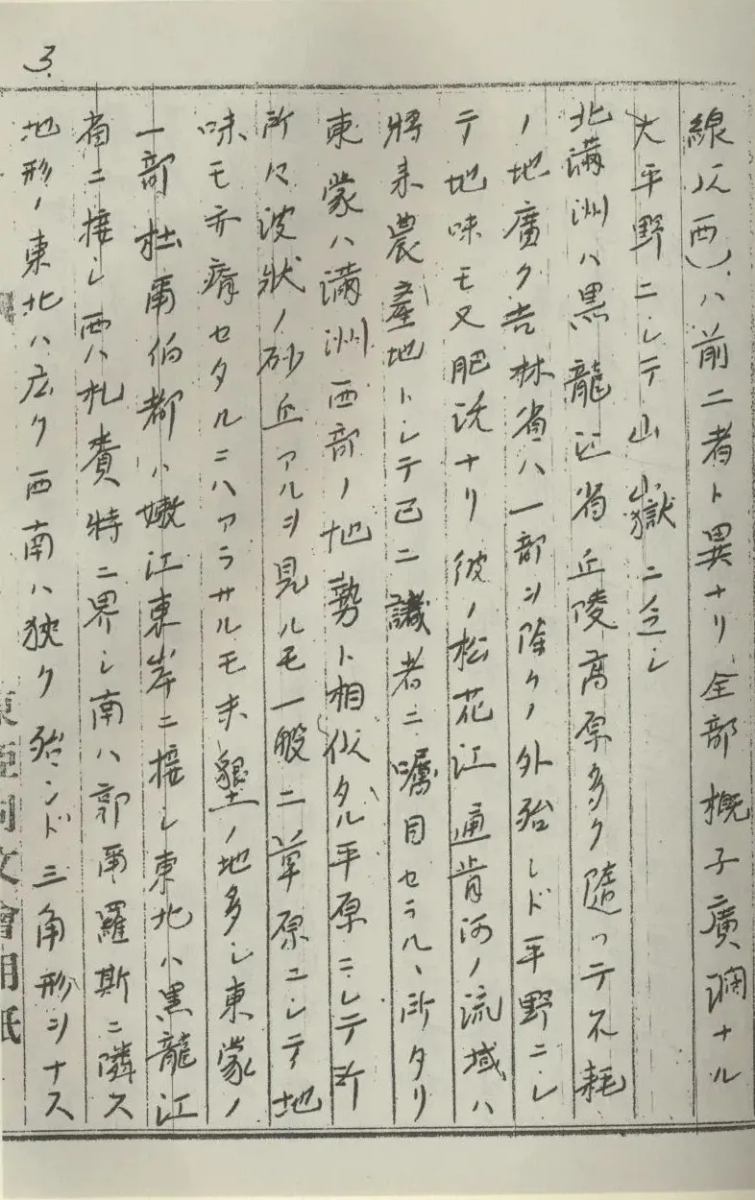 3.
線以西)ハ前二者ト異ナリ全部概子廣濶ナル
大平野ニシテ山嶽ニ乏シ
北満洲ハ黒龍江省丘陵高原多ク隨ッテ不耗
ノ地廣ク吉林省ハ一部ヲ除クノ外殆ンド平野ニシ
テ地味モ又肥沃ナリ彼ノ松花江通肯河ノ流域ハ
將来農産地トシテ已ニ識者ニ嘱目セラルヽ所タリ
東蒙ハ満洲西部ノ地勢ト相似タル平原ニシテ
所々波狀ノ砂丘アルヲ見ルモ一般ニ草原ニシテ地
味モ亦瘠セタルニハアラサルモ未墾ノ地多シ東蒙ノ
一部杜爾伯都ハ嫩江東岸ニ接シ東北ハ黒龍江
省ニ接シ西ハ札賚特ニ界シ南ハ郭爾羅斯ニ隣ス
地形ノ東北ハ広ク西南ハ狹ク殆ンド三角形ヲナス
東亞同文會用紙